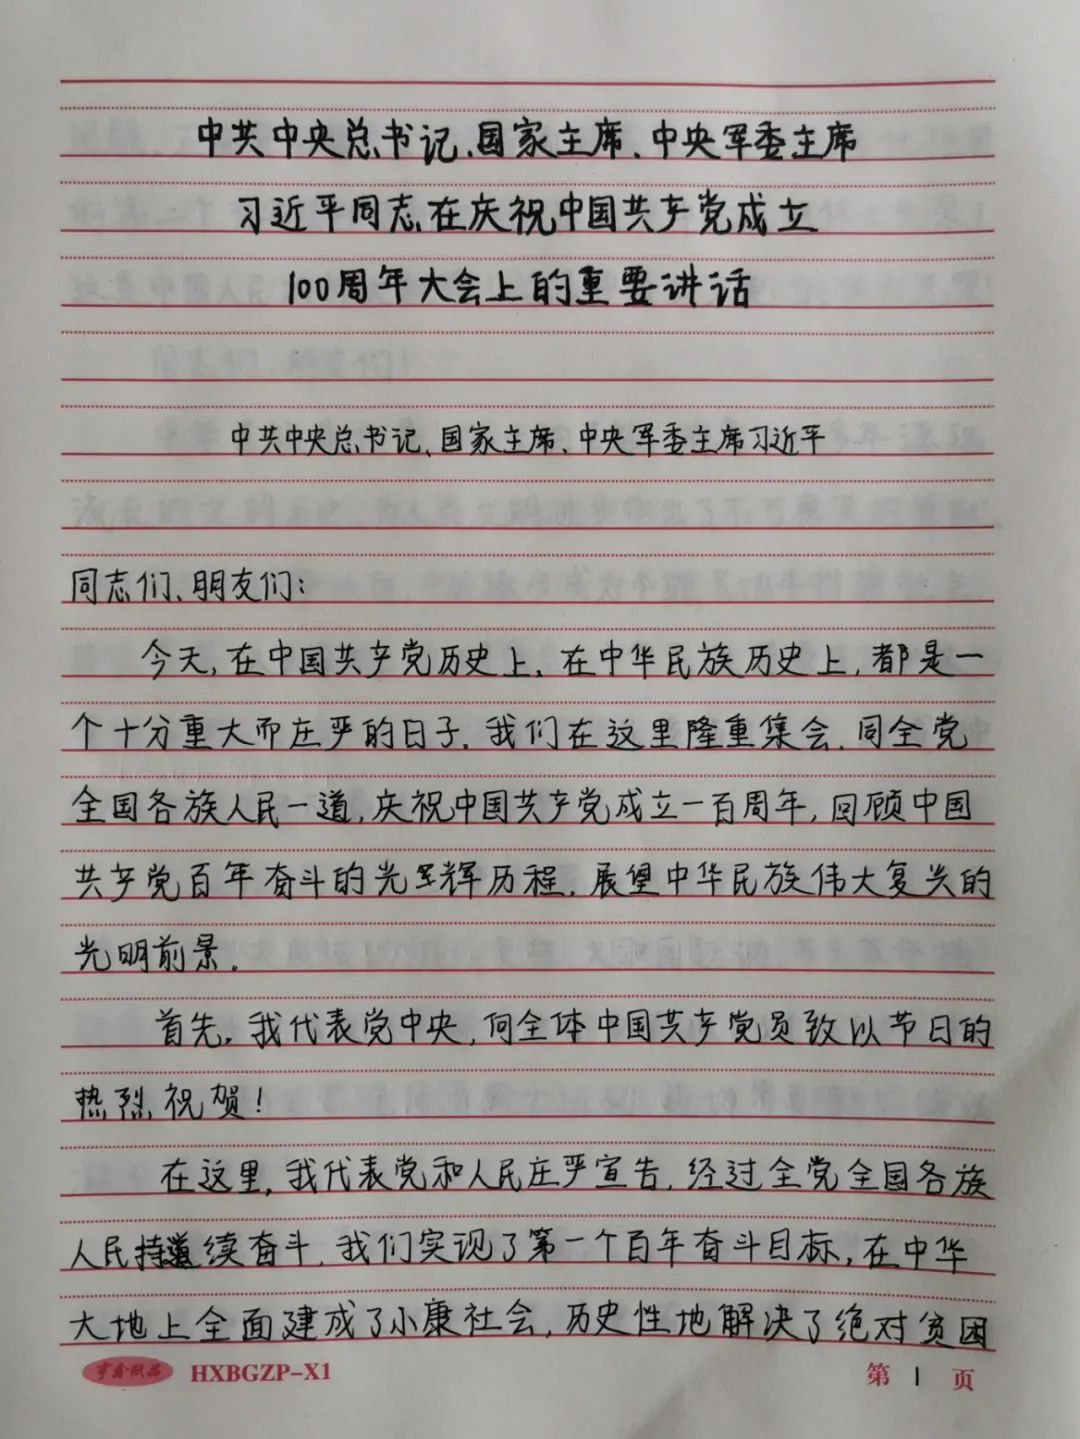 中共中央总书记、国家主席、中央军委主席
习近平同志在庆祝中国共产党成立
100周年大会上的重要讲话
中共中央总书记、国家主席、中央军委主席习近平
同志们、朋友们：
今天，在中国共产党历史上，在中华民族历史上，都是一
个十分重大而庄严的日子。我们在这里隆重集会，同全党
全国各族人民一道，庆祝中国共产党成立一百周年，回顾中国
共产党百年奋斗的光辉历程，展望中华民族伟大复兴的
光明前景。
首先，我代表党中央，向全体中国共产党员致以节日的
热烈祝贺！
在这里，我代表党和人民庄严宣告，经过全党全国各族
人民持续奋斗，我们实现了第一个百年奋斗目标，在中华
大地上全面建成了小康社会，历史性地解决了绝对贫困
HXBGZP-X1
第 1 页